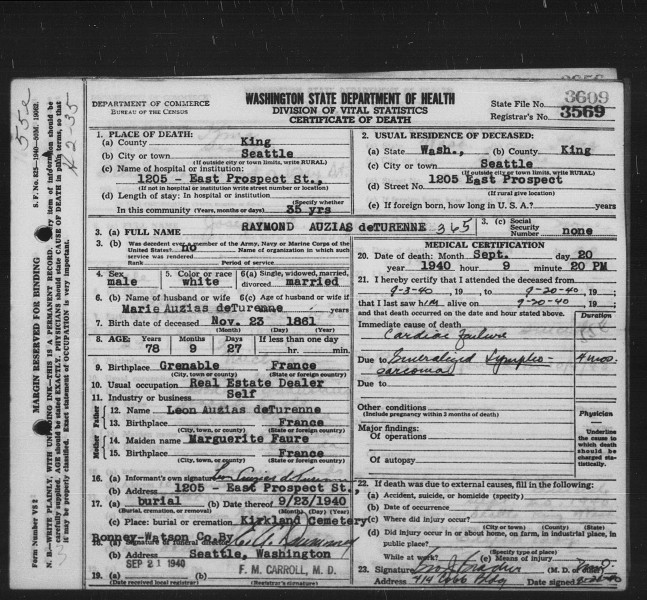 DEPARTMENT OF COMMERCE
BUREAU OF THE CENSUS
WASHINGTON STATE DEPARTMENT OF HEALTH
DIVISION OF VITAL STATISTICS
CERTIFICATE OF DEATH
State File No. 3609
Registrar's No. 3569
1. PLACE OF DEATH:
(a) County King
(b) City or town Seattle
(If outside city or town limits, write RURAL)
(c) Name of hospital or institution:
1205 - East Prospect St.,
(If not in hospital or institution write street number or location)
(d) Length of stay: In hospital or institution
(Specify whether
In this community (Years, months or days) 35 yrs
2. USUAL RESIDENCE OF DECEASED:
(a) State Wash., (b) County King
(c) City or town Seattle
(If outside city or town limits, write RURAL)
(d) Street No. 1205 East Prospect
(If rural give location)
(e) If foreign born, how long in U. S. A.? years
3. (a) FULL NAME RAYMOND AUZIAS deTURENNE 365
3. (c) Social Security Number none
3. (b) Was decedent ever a member of the Army, Navy or Marine Corps of the
United States? no Name of organization in which such
service was rendered
Rank Period of service
4. Sex male
5. Color or race white
6(a) Single, widowed, married, divorced married
6. (b) Name of husband or wife 6(c) Age of husband or wife if
Marie Auzias deTurenne years
7. Birth date of deceased Nov. 23 1861
(Month) (Day) (Year)
8. AGE: Years Months Days If less than one day
78 9 27 hr. min.
9. Birthplace Grenable France
(City, town, county) (State or foreign country)
10. Usual occupation Real Estate Dealer
11. Industry or business Self
Father
12. Name Leon Auzias deTurenne
13. Birthplace France
(City, town, county) (State or foreign country)
Mother
14. Maiden name Marguerite Faure
15. Birthplace France
(City, town, county) (State or foreign country)
16. (a) Informant's own signature
(b) Address 1205 - East Prospect St.,
17. (a) burial (b) Date thereof 9/23/1940
(Burial, cremation, or removal) (Month) (Day) (Year)
(c) Place: burial or cremation Kirkland Cemetery
Bonney-Watson Co. By
18. (a) Signature of funeral director
(b) Address Seattle, Washington
19. (a) SEP 21 1940 (b) F. M. CARROLL, M. D.
(Date received local registrar) (Registrar's signature)
MEDICAL CERTIFICATION
20. Date of death: Month Sept. day 20
year 1940 hour 9 minute 20 PM
21. I hereby certify that I attended the deceased from
9-3-40, 19 to 9-20-40, 19
that I last saw him alive on 9-20-40, 19
and that death occurred on the date and hour stated above.
Duration
Immediate cause of death
Cardiac Failure
Due to Generalized Lympho- 4 mos.
sarcoma
Due to
Other conditions
(Include pregnancy within 3 months of death)
Physician
Major findings:
Of operations
Of autopsy
Underline the cause to which death should be charged statistically.
22. If death was due to external causes, fill in the following:
(a) Accident, suicide, or homicide (specify)
(b) Date of occurrence
(c) Where did injury occur?
(City or town) (County) (State)
(d) Did injury occur in or about home, on farm, in industrial place, in
public place?
(Specify type of place)
While at work? (e) Means of injury
23. Signature (M. D. or other)
Address 414 Cobb Bldg Date signed
MARGIN RESERVED FOR BINDING
N. B.—WRITE PLAINLY, WITH UNFADING INK—THIS IS A PERMANENT RECORD. Every item of information should be
carefully supplied. AGE should be stated EXACTLY. PHYSICIANS should state CAUSE OF DEATH in plain terms, so that
it may be properly classified. Exact statement of OCCUPATION is very important.
Form Number VS 2
55e